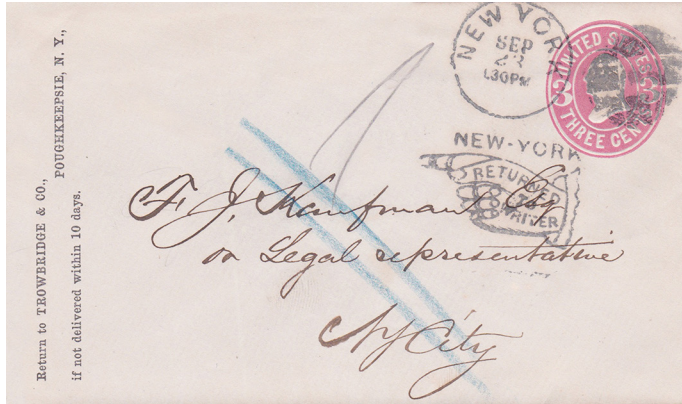 Return to TROWBRIDGE & CO.,
POUGHKEEPSIE, N. Y.,
if not delivered within 10 days.
NEW YORK
SEP
23
1.30PM
UNITED STATES
3
THREE CENTS
NEW-YORK
RETURNED
TO
WRITER
F. J. Kaufmann Esq
or Legal representative
NY City